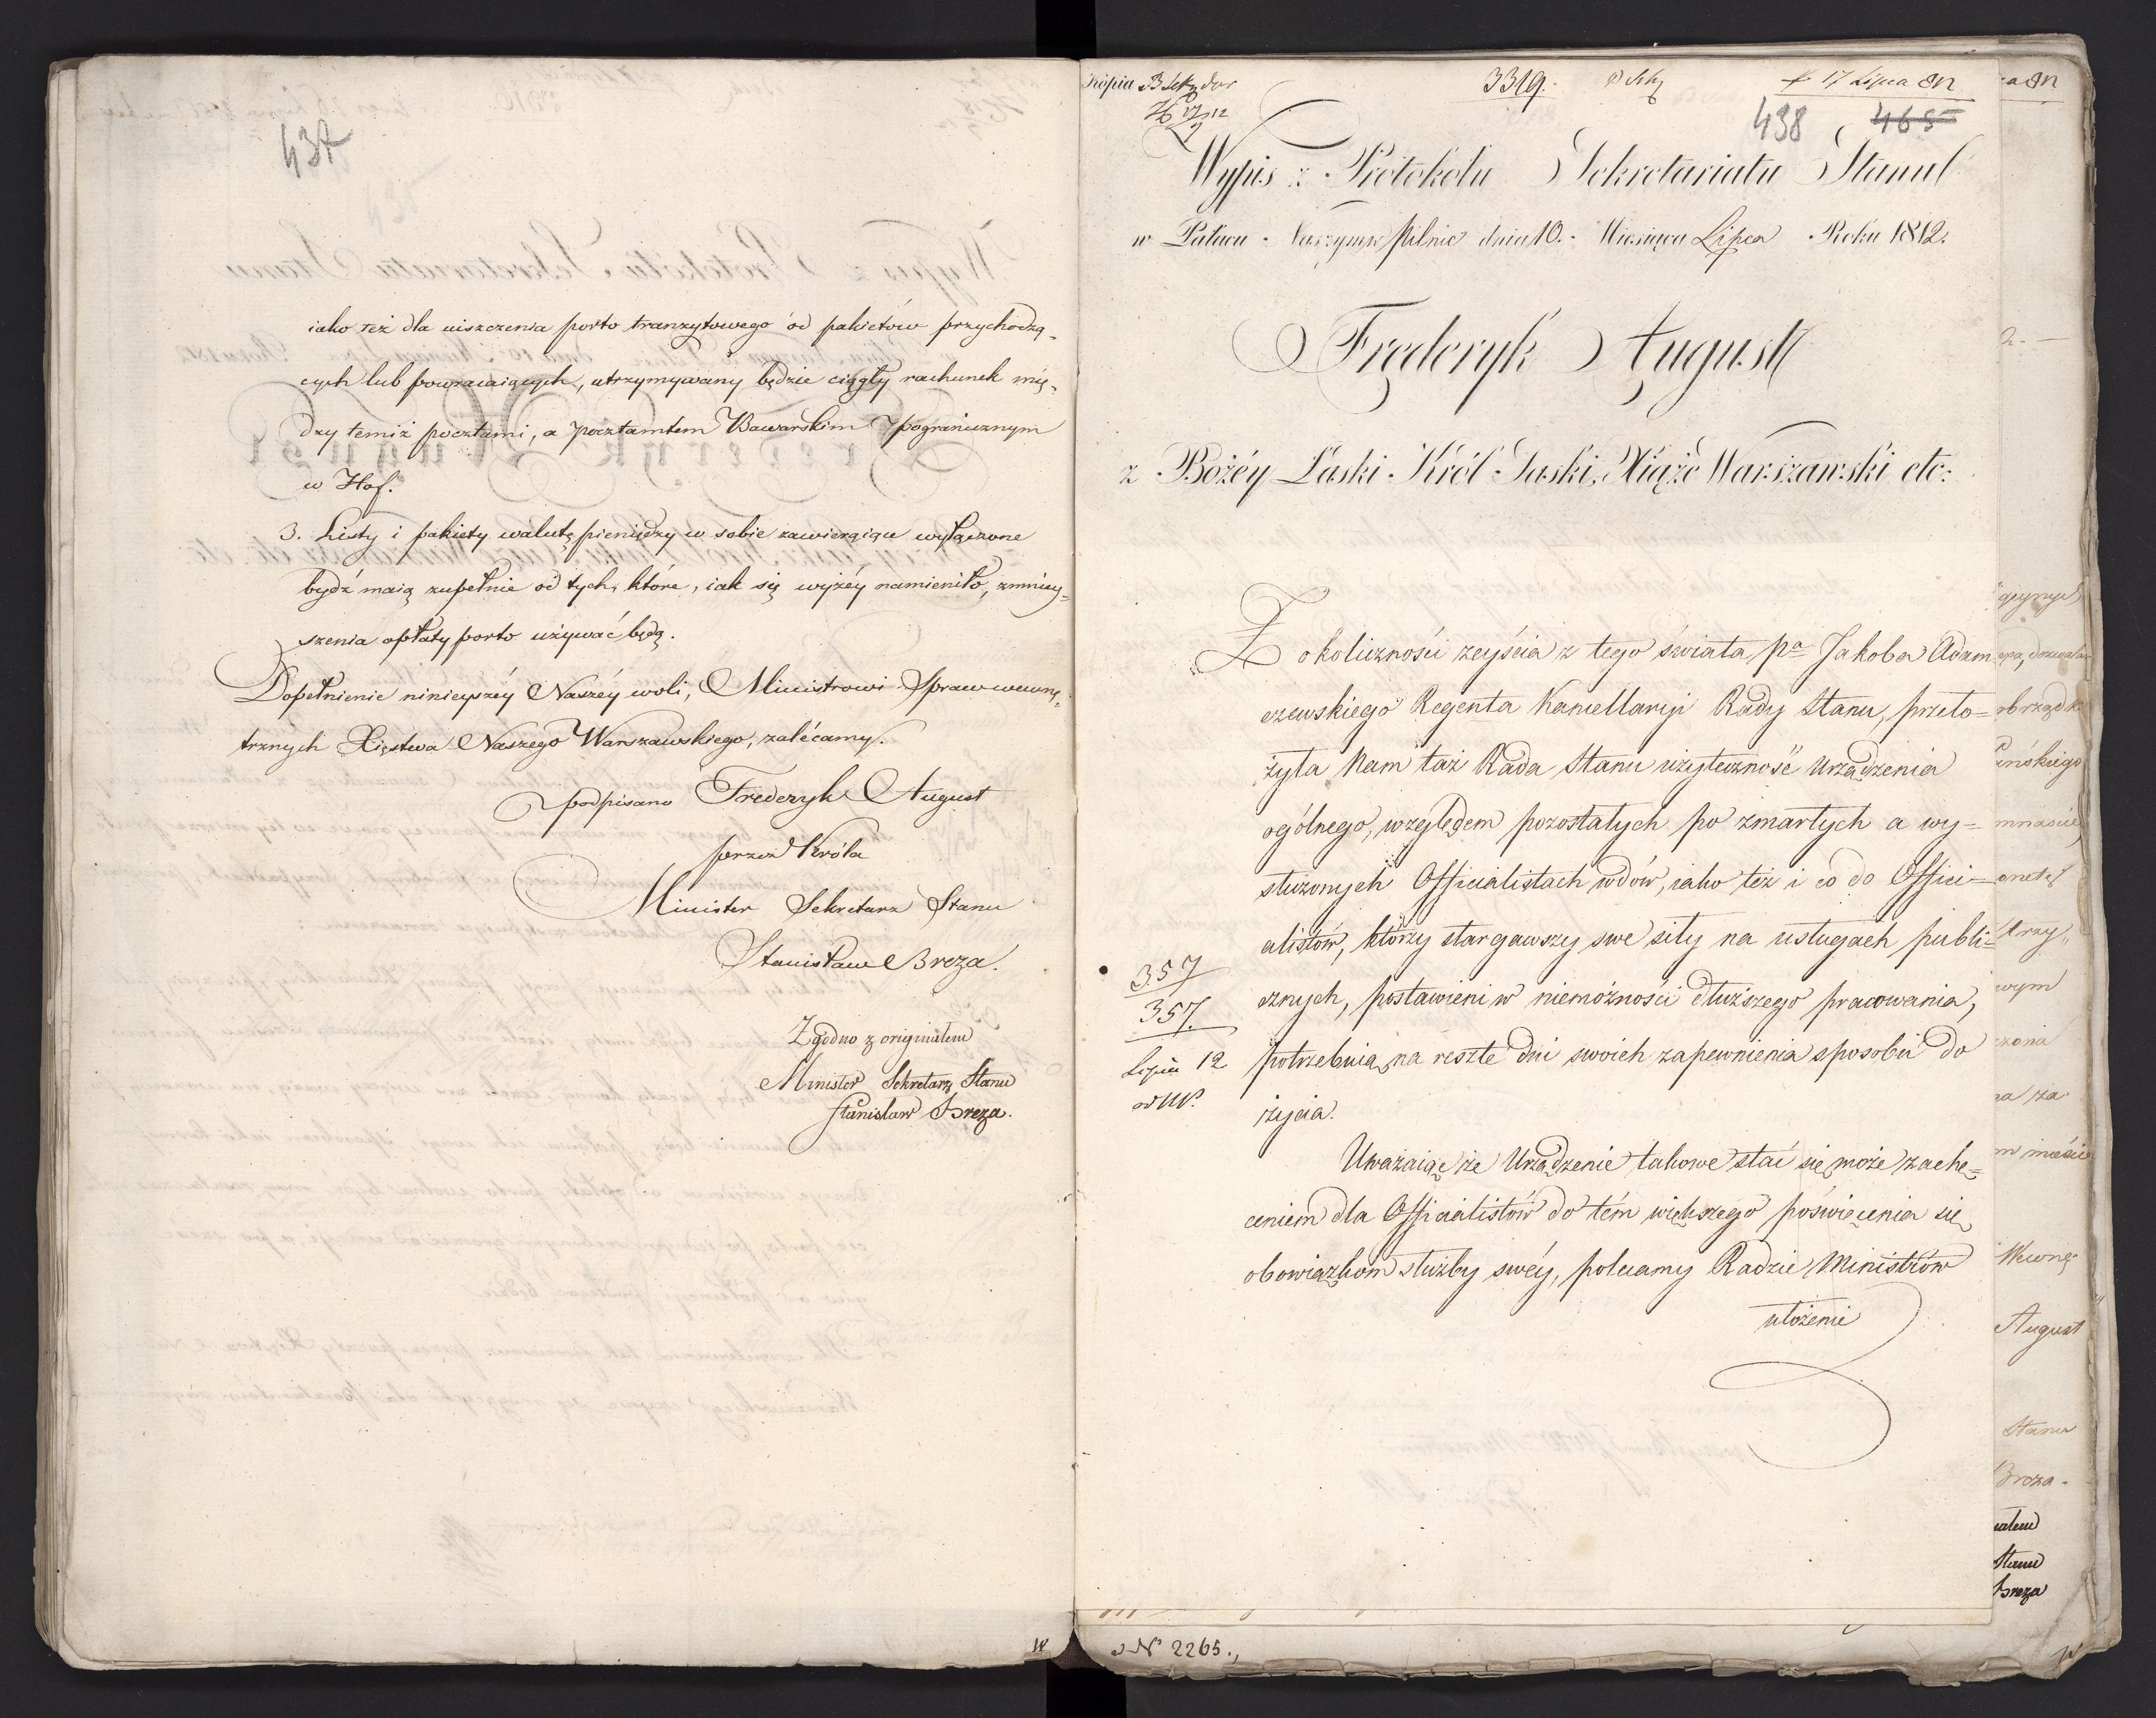 437
iako też dla uiszczenia porto tranzytowego od pakietów przychodzą-
cych lub powracaiących, utrzymywany będzie ciągły rachunek mię-
dzy temiż pocztami, a pocztamtem Bawarskim pogranicznym
w Hof.
3. Listy i pakiety walutę pieniędzy w sobie zawieraiące wyłączone
bydź maią zupełnie od tych, które, iak się wyżéy namieniło, zmniey-
szenia opłaty porto używać będą.
Dopełnienie ninieyszéy Naszéy woli, Ministrowi Spraw wewnę-
trznych Xięstwa Naszego Warszawskiego, zalécamy.
podpisano Frederyk August
przez Króla
Minister Sekretarz Stanu
Stanisław Breza.
Zgodno z originałem
Minister Sekretarz Stanu
Stanisław Breza.
Kopia
3319.
17 Lipca 812
438 465
Wypis z Protokołu Sekretariatu Stanu
w Pałacu Naszym w Pilnic dnia 10. Miesiąca Lipca Roku 1812.
Fręderyk August
z Bożéy Łaski Król Saski, Xiąże Warszawski etc:
Z okoliczności zeyścia z tego świata pa Jakoba Adam
czewskiego Regenta Kancellaryi Rady Stanu, przeło=
żyła Nam taż Rada Stanu użyteczność Urządzenia
ogólnego, względem pozostałych po zmarłych a wy=
służonych Officialistach wdów, iako też i co do Offici=
alistów, którzy stargawszy swe siły na usługach publi=
cznych, postawieni w niemożności dłuższego pracowania,
potrzebuią na resztę dni swoich zapewnienia sposobu do
życia.
357
357.
Lipca 12
Uważaiąc że Urządzenie takowe stać się może zachę=
ceniem dla Officialistów do tém większego poświęcenia się
obowiązkom służby swéy, polecamy Radzie Ministrów
ułożenie
N 2265.
August
Stanu
Breza.
Stanu
Breza